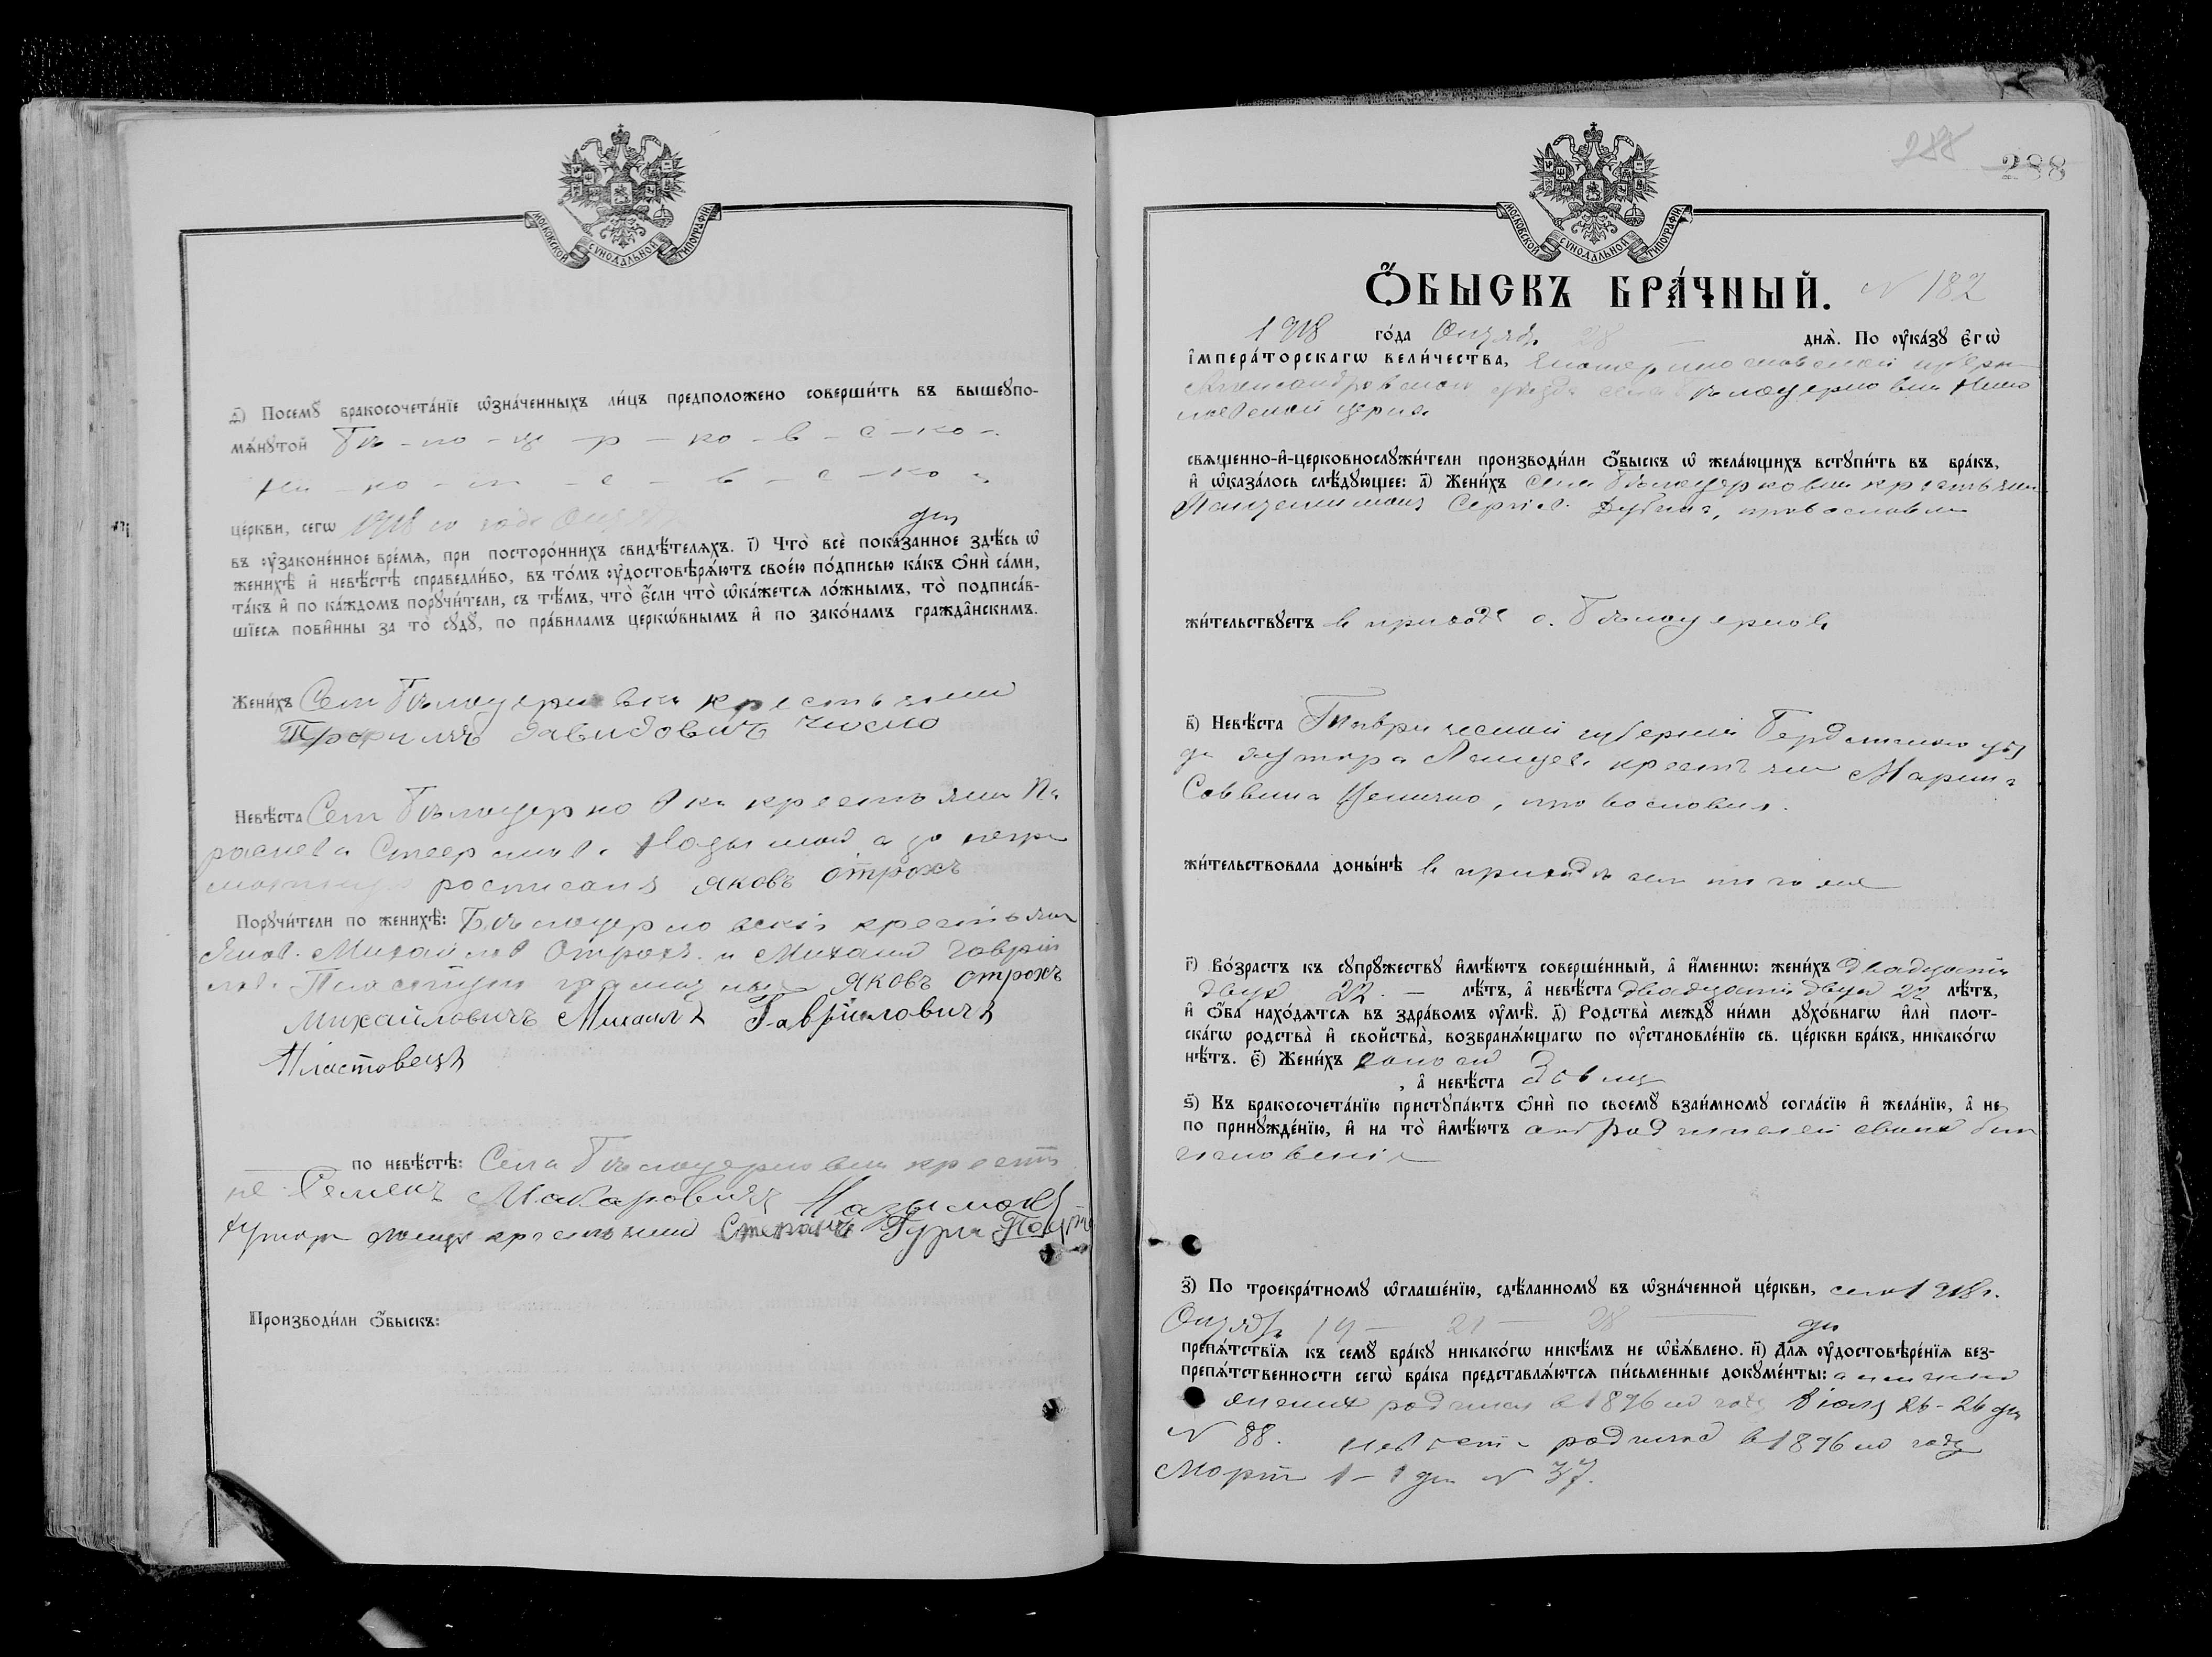 МОСКОВСКОЙ СѴНОДАЛЬНОЙ ТИПОГРАФІИ.
д҃) Посемꙋ̀ бракосочета́нїе ѡ҆зна́ченныхъ ли́цъ предположено соверши́ть въ вышеꙋпо-
мѧ́нꙋтой Бѣ-ло-це-р-ко-в-с-ко-
Ни-ко-
це́ркви, сегѡ̀ 1918 го года дня
въ ᲂу҆зако́ненное вре́мѧ, при посторо́ннихъ свидѣ́телѧхъ. і҃) Что̀ всѐ показанное здѣ́сь ѡ҆
женихѣ̀ и҆ невѣ́стѣ справедли́во, въ то́мъ ᲂу҆достовѣрѧ́ютъ свое́ю по́дписью ка́къ ѻ҆нѝ са́ми,
та́къ и҆ по ка́ждомъ порꙋчи́тели, съ тѣ́мъ, что̀ є҆́сли что̀ ѡ҆ка́жетсѧ ло́жнымъ, то̀ подписа́в-
шїесѧ пови́нны за то̀ сꙋдꙋ̀, по пра́виламъ церкѡ́внымъ и҆ по зако́намъ гражда́нскимъ.
Жени́хъ Села Бѣлоцерковки крестьянин
Трофимъ Давидовичъ Число
Невѣ́ста Села Бѣлоцерковки крестьянка Па
раскева а за негра
мотную росписался Яковъ Отрохъ
Порꙋчи́тели по женихѣ̀: Бѣлоцерковскіе крестьяне
Яков Михайлов Отрохъ и Михаил Гавріи
лов грамотные Яковъ Отрохъ
Михайловичъ Михаилъ Гавріиловичъ
Пластовецъ
по невѣ́стѣ: Села Бѣлоцерковки крестья
не Семенъ Макаровичъ
хутора крестьянин Степанъ Гура
Производи́ли ѻ҆́быскъ:
288
288
МОСКОВСКОЙ СѴНОДАЛЬНОЙ ТИПОГРАФІИ.
Ѻ҆́БЫСКЪ БРА́ЧНЫЙ. N 182
1918 го́да Октября 28 днѧ̀. По ᲂу҆ка́зꙋ є҆гѡ̀
і҆мпера́торскагѡ вели́чества, Екатеринославской губерн
Александровскаго уезда села Бѣлоцерковки Нико
лаевской церкви
свѧщенно-и҆-церковнослꙋжи́тели производи́ли ѻ҆́быскъ ѡ҆ жела́ющихъ встꙋпи́ть въ бра́къ,
и҆ ѡ҆каза́лось слѣ́дꙋющее: а҃) Жени́хъ села Бѣлоцерковки крестьянин
Пантелимон Сергіев православн
жи́тельствꙋетъ в приходе с. Бѣлоцерковки
в҃) Невѣ́ста Таврической губерніи Бердянского уез
да хутора крестьянка Марина
Саввина православная.
жи́тельствовала доны́нѣ в приходе села того же
г҃) Во́зрастъ къ сꙋпрꙋжествꙋ и҆мѣ́ютъ соверше́нный, а҆ и҆́меннѡ: жени́хъ двадцати
двух 22 - лѣ́тъ, а҆ невѣ́ста двадцати двух 22 лѣ́тъ,
и҆ ѻ҆́ба нахо́дѧтсѧ въ здра́вомъ ᲂу҆мѣ̀. д҃) Родства̀ междꙋ̀ ни́ми дꙋхо́внагѡ и҆лѝ плот-
ска́гѡ родства̀ и҆ свойства̀, возбранѧ́ющагѡ по ᲂу҆становле́нїю св. це́ркви бра́къ, никако́гѡ
нѣ́тъ. є҃) Жени́хъ холост
, а҆ невѣ́ста девица
ѕ҃) Къ бракосочета́нїю пристꙋпа́ктъ ѻ҆нѝ по своемꙋ̀ взаи́мномꙋ согла́сїю и҆ жела́нїю, а҆ не
по принꙋжде́нїю, и҆ на то̀ и҆мѣ́ютъ от родителей своих благо
словеніе
з҃) По троекра́тномꙋ ѡ҆глаше́нїю, сдѣ́ланномꙋ въ ѡ҆зна́ченной це́ркви, сего 1918 г.
Октября 14 - 21 - 28 дня
препѧ́тствїѧ къ семꙋ̀ бра́кꙋ никако́гѡ никѣ́мъ не ѡ҆б̾ѧ́влено. и҃) Длѧ̀ ᲂу҆достовѣре́нїѧ без-
препѧ́тственности сегѡ̀ бра́ка представлѧ́ютсѧ пи́сьменные докꙋме́нты:
жених родился в 1896 м году Іюля 26-26 дня
N 88. невеста родилась в 1896 м году
Марта 1-1 дня N 37.